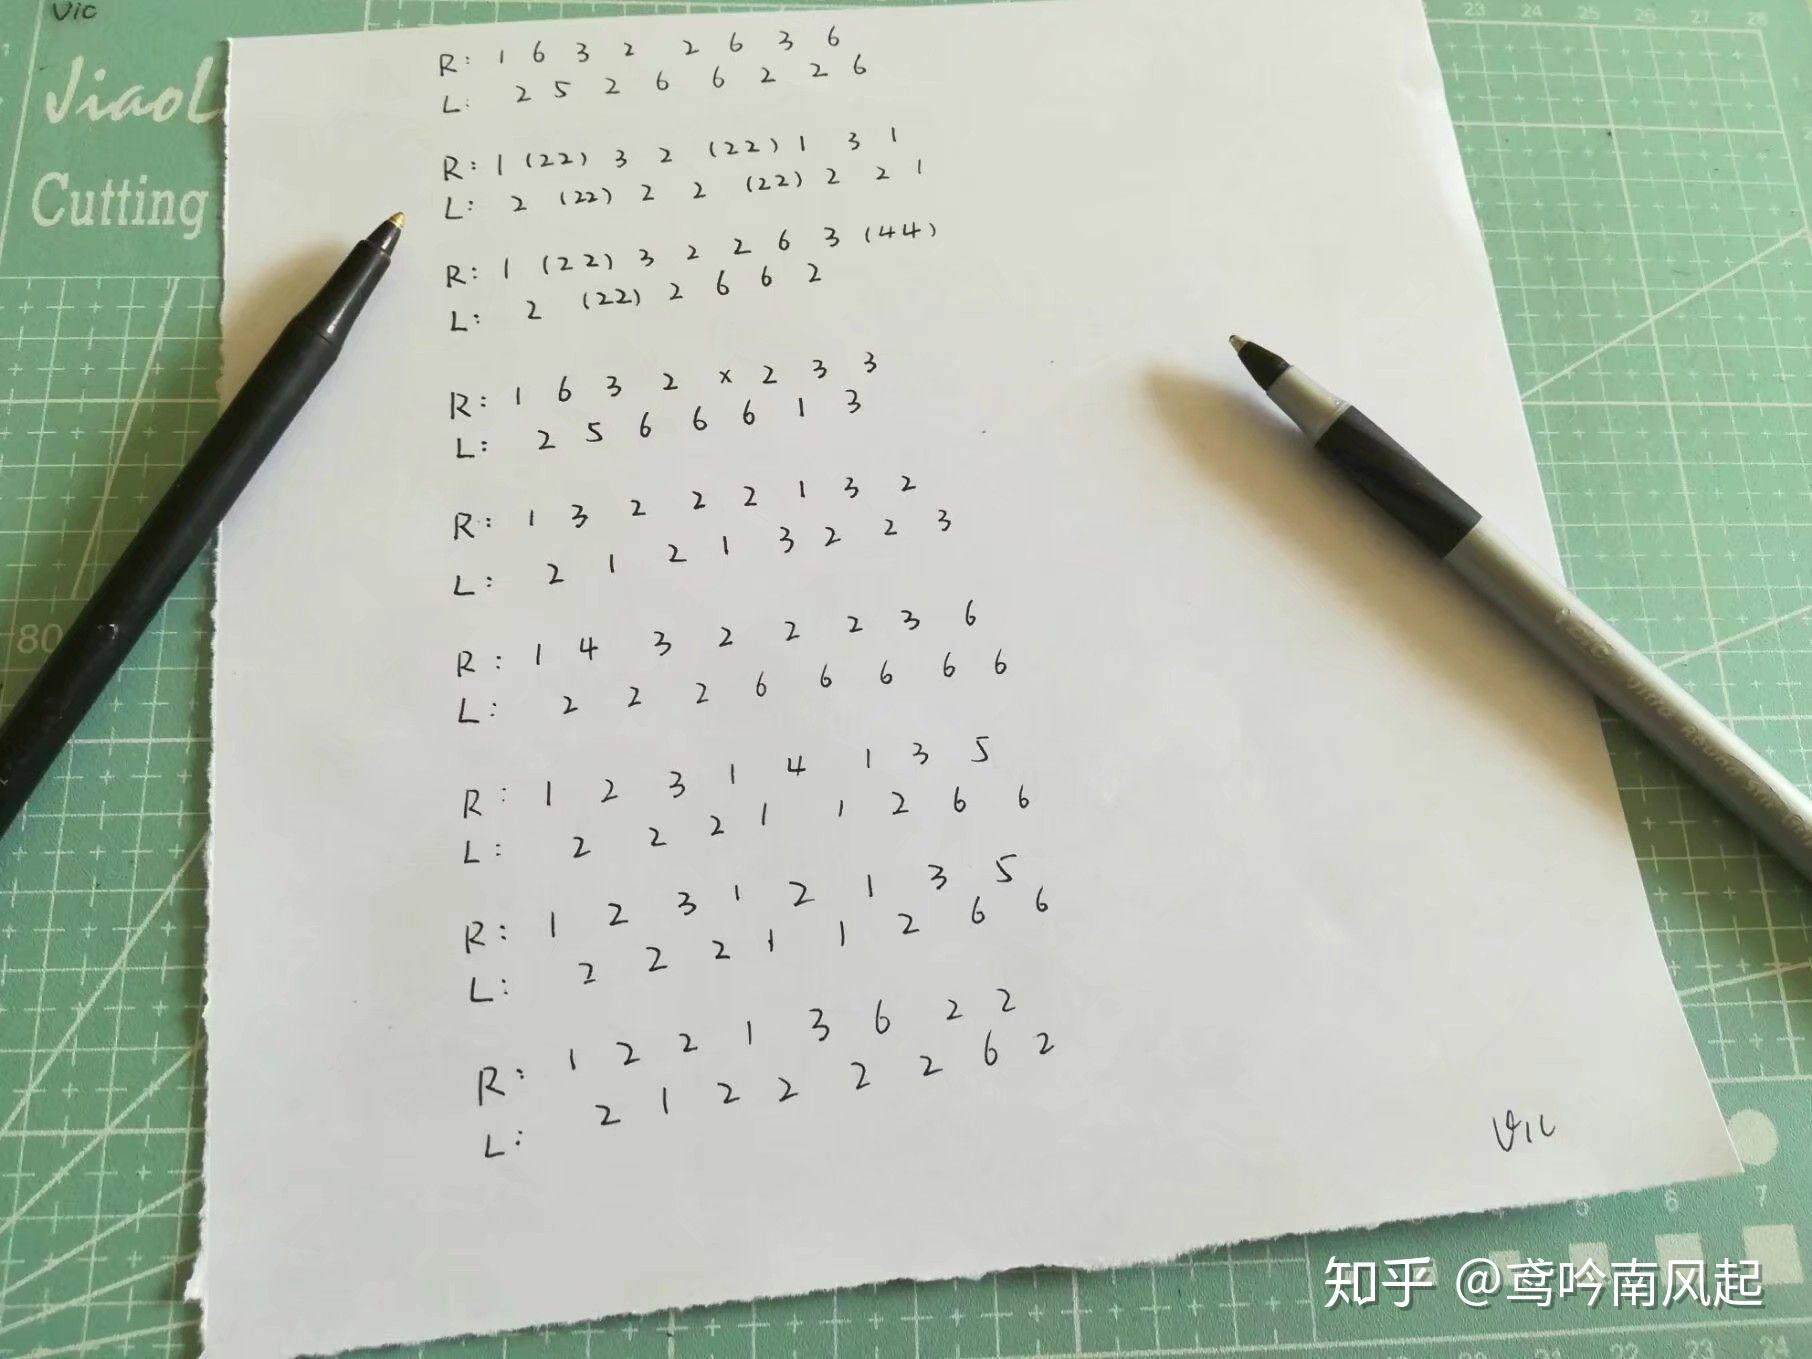 Vic
JiaoL
Cutting
R: 1 6 3 2 2 6 3 6
L: 2 5 2 6 6 2 2 6
R: 1 (22) 3 2 (22) 1 3 1
L: 2 (22) 2 2 (22) 2 2 1
R: 1 (22) 3 2 2 6 3 (44)
L: 2 (22) 2 6 6 2
R: 1 6 3 2 x 2 3 3
L: 2 5 6 6 6 1 3
R: 1 3 2 2 2 1 3 2
L: 2 1 2 1 3 2 2 3
R: 1 4 3 2 2 2 3 6
L: 2 2 2 6 6 6 6 6
R: 1 2 3 1 4 1 3 5
L: 2 2 2 1 1 2 6 6
R: 1 2 3 1 2 1 3 5
L: 2 2 2 1 1 2 6 6
R: 1 2 2 1 3 6 2 2
L: 2 1 2 2 2 2 6 2
Vic
80
23 24 25 26 27 28
5 6 7
21 22 23 24
知乎 @鸢吟南风起